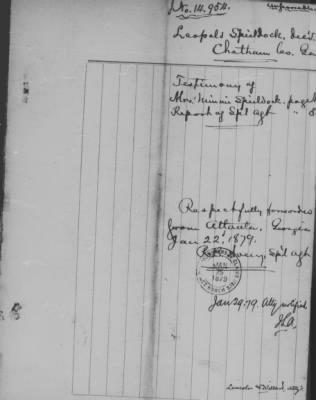 No. 14.954.
Leopold Spieldock, dec'd.
Chatham Co. Ga
Testimony of
Mrs. Minnie Spieldock, page
Report of Sp'l Agt " 8
Respectfully forwarded
from Atlanta, Georgia
Jan 22, 1879.
Sp'l Agt
JAN
1879
Jan 29.79. Atty notified
Atty's